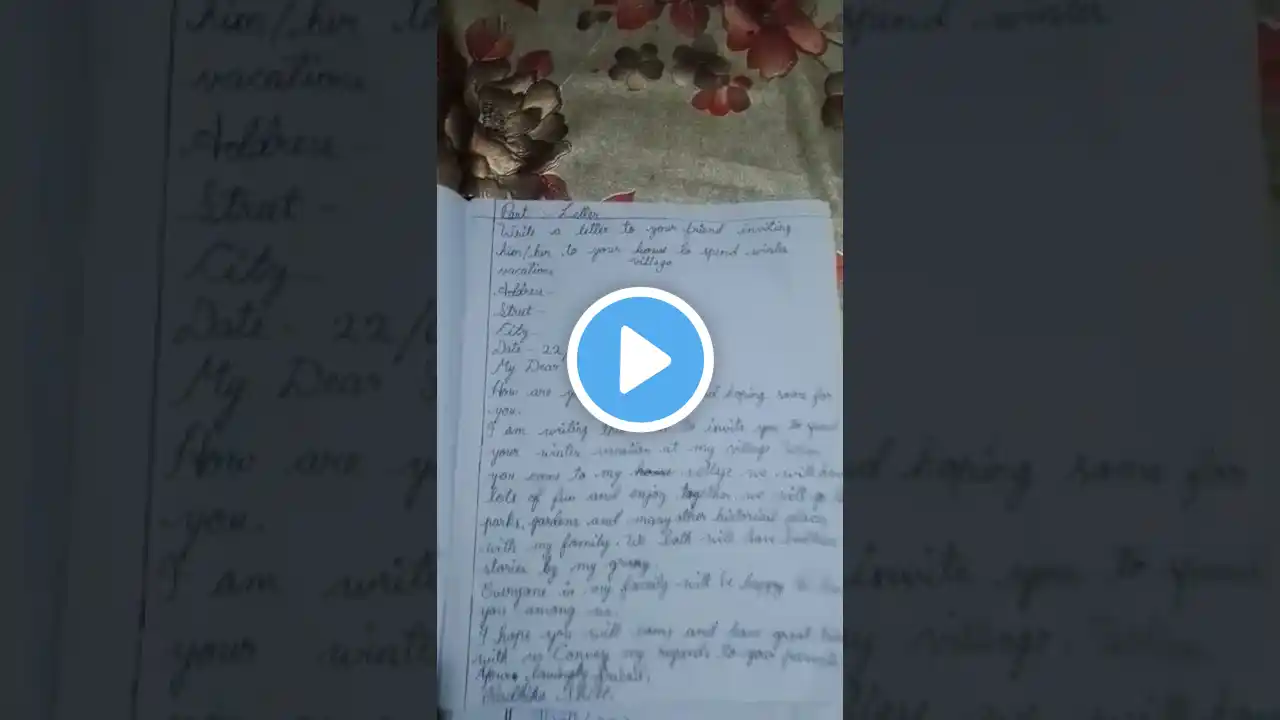 Part - Letter
Write a letter to your friend inviting
him/her to your house to spend winter
village
vacations
Address -
Street -
City -
Date - 22/
My Dear
How are you hoping same for
you.
I am writing this to invite you to spend
your winter vacation at my village.
you come to my house village we will have
lots of fun and enjoy together we will go to
parks, gardens and many other historical places
with my family. We Both will
stories by my granny.
Everyone in my family will be happy to have
you among us.
I hope you will come and have great time
with us Convey my regards to your parents
Yours lovingly friend,